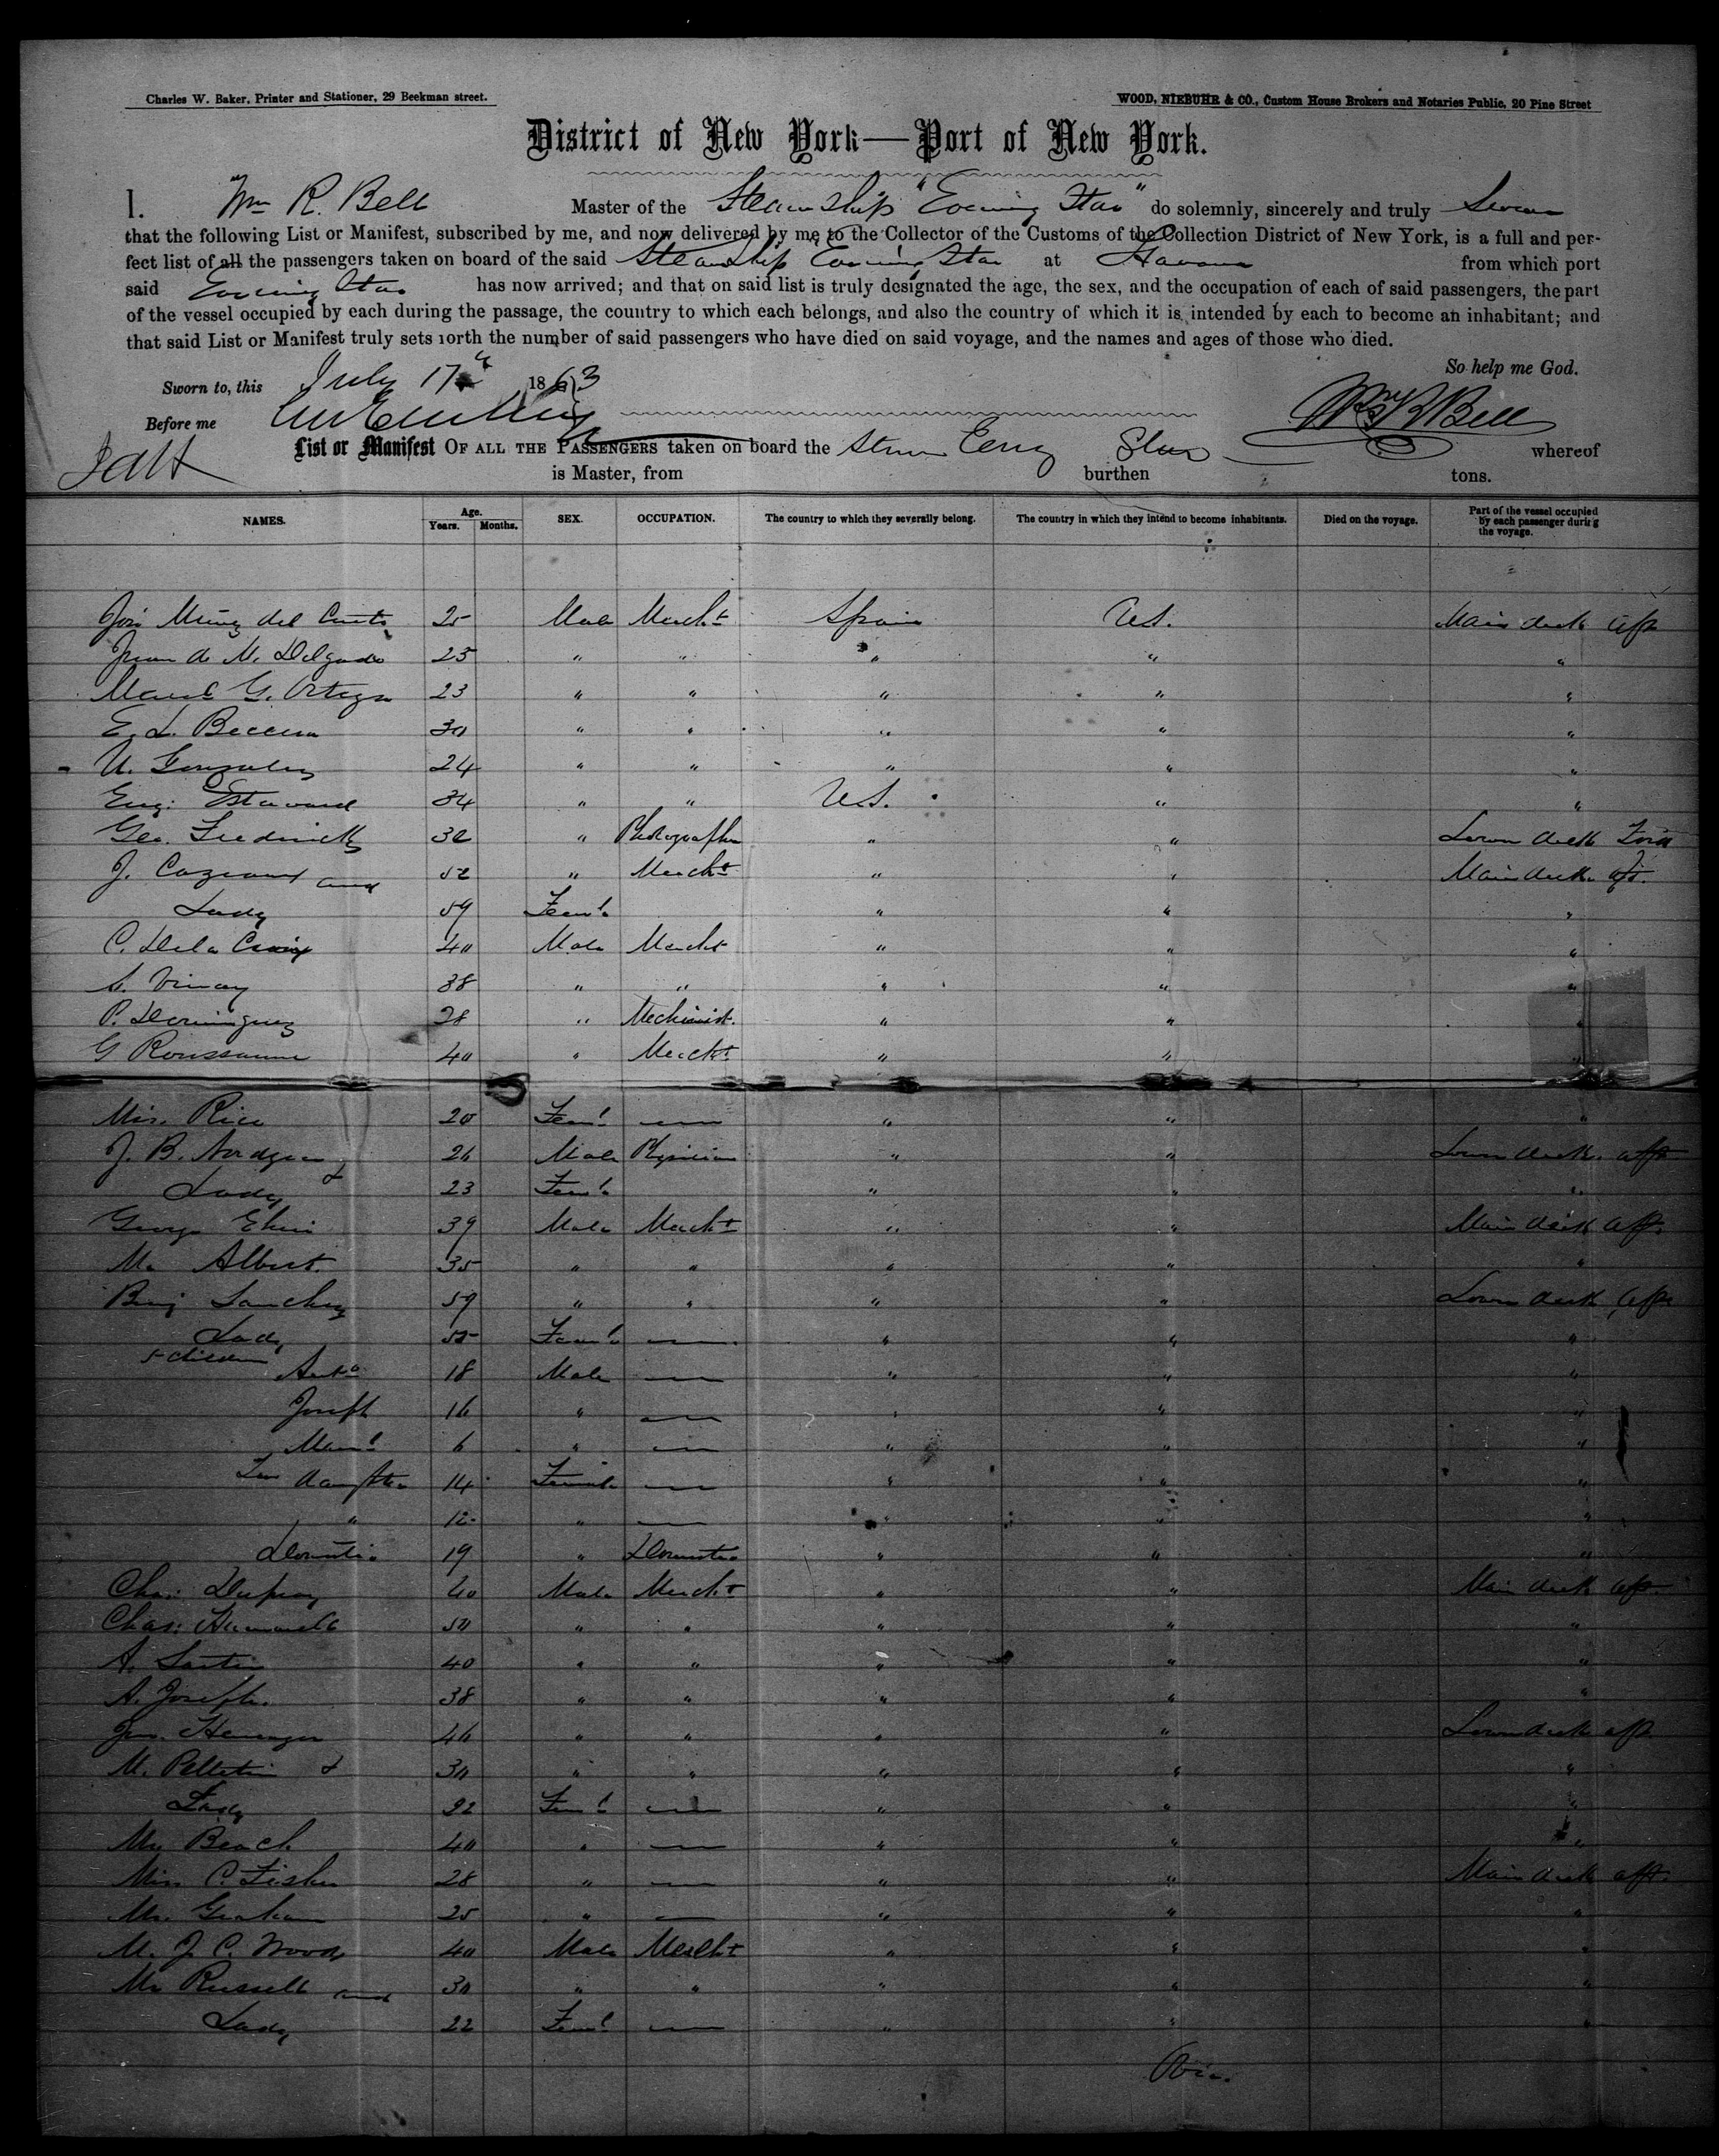 Charles W. Baker, Printer and Stationer, 29 Beekman street.
WOOD, NIEBUHR & CO., Custom House Brokers and Notaries Public, 20 Pine Street
District of New York—Port of New York.
I. Wm R. Bell Master of the Steam Ship "Evening Star" do solemnly, sincerely and truly Swear
that the following List or Manifest, subscribed by me, and now delivered by me to the Collector of the Customs of the Collection District of New York, is a full and per-
fect list of all the passengers taken on board of the said Steamship Evening Star at Havana from which port
said Evening Star has now arrived; and that on said list is truly designated the age, the sex, and the occupation of each of said passengers, the part
of the vessel occupied by each during the passage, the country to which each belongs, and also the country of which it is intended by each to become an inhabitant; and
that said List or Manifest truly sets forth the number of said passengers who have died on said voyage, and the names and ages of those who died.
So help me God.
Sworn to, this July 17th 1863
Before me
Wm R Bell
List or Manifest OF ALL THE PASSENGERS taken on board the Star whereof
is Master, from burthen tons.
NAMES. Age. Years. Months. SEX. OCCUPATION. The country to which they severally belong. The country in which they intend to become inhabitants. Died on the voyage. Part of the vessel occupied by each passenger during the voyage.
25 Male Mercht Spain U.S. Main deck aft
Juan de M. Delgado 25 " " " " "
G. Ortega 23 " " " " "
E. L. Becerra 30 " " " " "
U. Gonzalez 24 " " " " "
34 " " U.S. " "
Geo. Fredericks 32 " Photographer " " Lower deck
J. and 52 " Mercht " " Main deck aft.
Lady 59 Feml " " "
C. De la 40 Male Mercht " " "
38 " " " " "
P. Dominguez 28 " Mechinist. " " "
G 40 " Mercht " " "
Rice 20 Feml — " " "
J. B. 26 Male Physician " " Lower deck. aft
Lady & 23 Feml " " "
George 39 Male Mercht " " Main deck aft.
M. Albert. 35 " " " " "
Benj Sanchez 59 " " " " Lower deck aft
Lady 55 Feml — " " "
5 children
Anto 18 Male — " " "
Joseph 16 " — " " "
Manl 6 " — " " "
Two daughters 14 Female — " " "
" 12 " — " " "
Domestic 19 " Domestic " " "
Chas: Dupuy 40 Male Mercht " " Main deck aft.
Chas: 50 " " " " "
A. 40 " " " " "
A. Joseph. 38 " " " " "
46 " " " " Lower deck aft
M. & 30 " " " " "
Lady 22 Feml — " " "
Beach 40 " — " " "
Miss C. Fisher 28 " — " " Main deck aft.
Graham 25 " — " " "
M. J. C. Wood 40 Male Mercht " " "
Mr Russell and 30 " " " " "
Lady 22 Feml — " " "